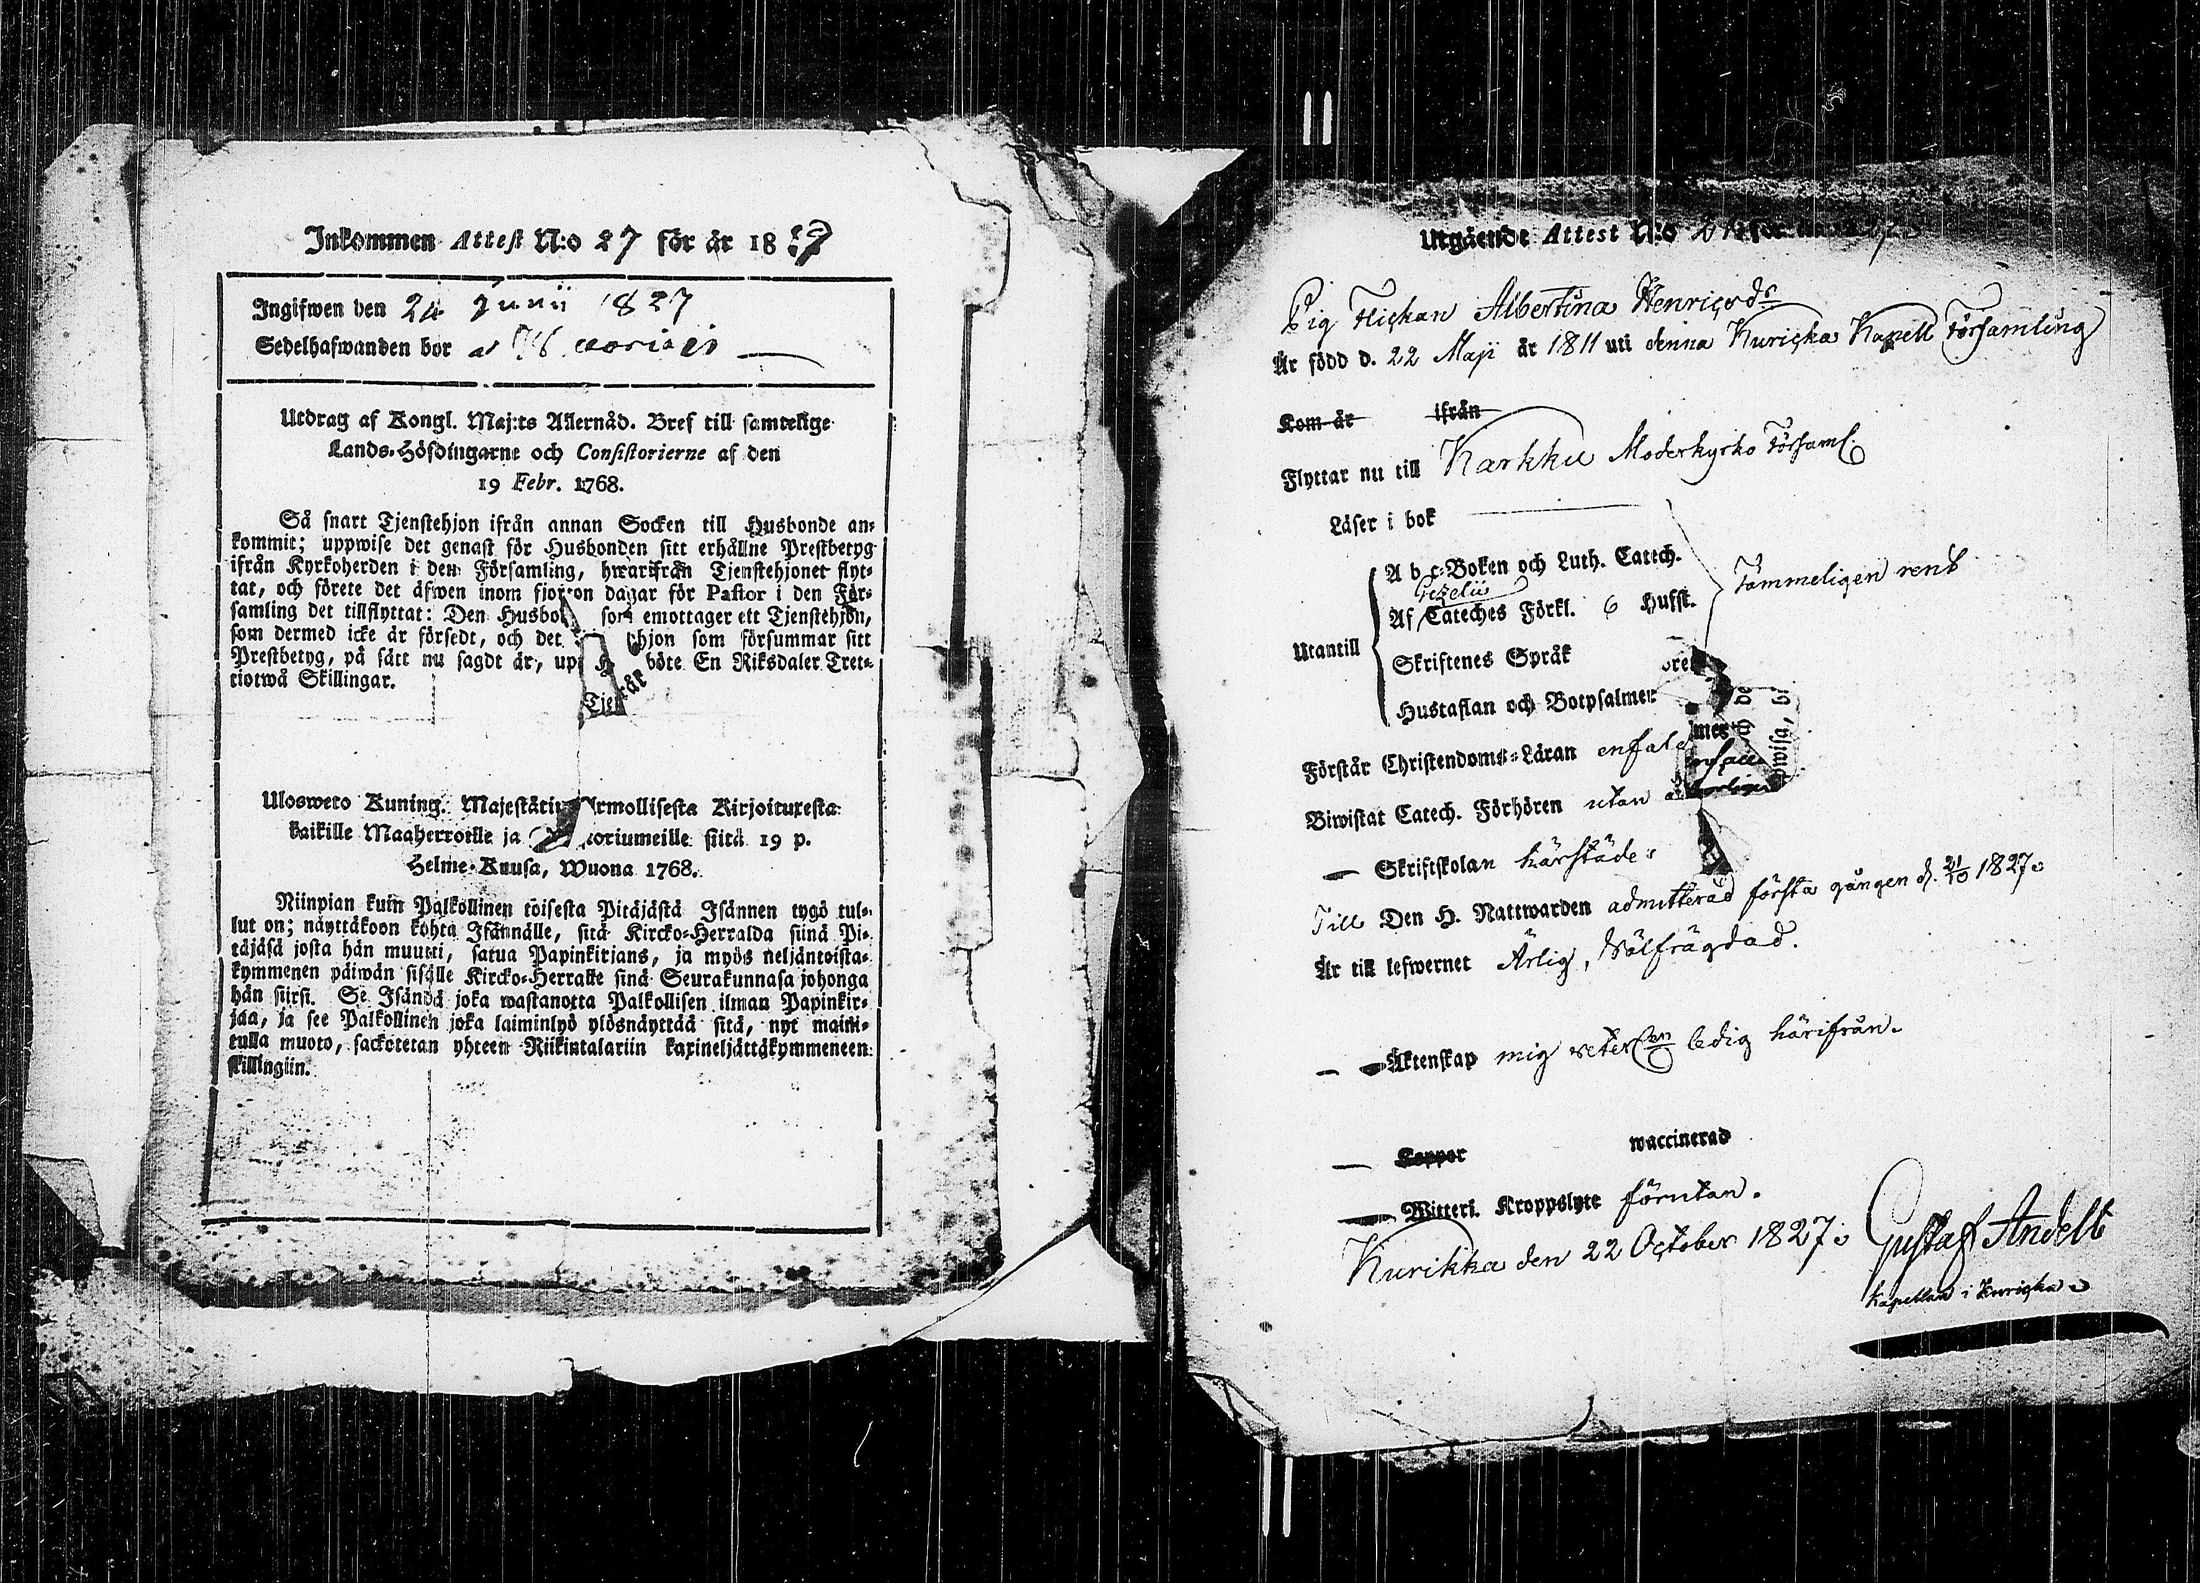 Inkommen Attest N:o 27 för år 1827
Ingifwen den 24 Junii 1827
Sedelhafwanden bor
Utdrag af Kongl. Maj:ts Allernåd. Bref till samtelige
Lands-Höfdingarne och Consistorierne af den
19 Febr. 1768.
Så snart Tjenstehjon ifrån annan Socken till Husbonde an-
kommit; uppwise det genast för Husbonden sitt erhållne Prestbetyg
ifrån Kyrkoherden i den Församling, hwarifrån Tjenstehjonet flyt-
tat, och förete det äfwen inom fjorton dagar för Pastor i den För-
samling det tillflyttat: Den Husbo som emottager ett Tjenstehjon,
som dermed icke är försedt, och det hjon som försummar sitt
Prestbetyg, på sätt nu sagdt är, up böte En Riksdaler Tret-
tiotwå Skillingar.
Tjen
Ulosweto Kuning. Majestätin Armollisesta Kirjoituxesta
kaikille Maaherroille ja toriumeille siitä 19 p.
Helme-Kuusa, Wuona 1768.
Niinpian kuin Palkollinen toisesta Pitäjästä Isännen tygö tul-
lut on; näyttäkoon kohta Isännälle, sitä Kircko-Herralda siinä Pi-
täjäsä josta hän muutti, satua Papinkirjans, ja myös neljäntoista-
kymmenen päiwän sisälle Kircko-Herralle sinä Seurakunnasa johonga
hän siirsi. Se Isändä joka wastanotta Palkollisen ilman Papinkir-
jaa, ja see Palkollinen joka laiminlyö ylösnäyttää sitä, nyt maini-
tulla muoto, sackotetan yhteen Riikintalariin kaxineljättäkymmeneen
skillingiin.
Utgående Attest N:o
Pig Flickan Albertina Henricsdr
Är född d. 22 Maji år 1811 uti denna Kuricka Kapell Församling
Kom år ifrån
Flyttar nu till Karkku Moderkyrko Församl.
Läser i bok
A b c-Boken och Luth. Catech.
Gezelii
Af Cateches Förkl. 6 Hufst. Tämmeligen rent
Utantill
Skriftenes Språk
Hustaflan och Botpsalmer
Förstår Christendoms-Läran enfal
Biwistat Catech. Förhören utan
— Skriftskolan härstädes
Till Den H. Nattwarden admitterad första gången d. 21/10 1827.
Är till lefwernet Ärlig, Wälfrägdad.
— Äktenskap mig veterl:en ledig härifrån.
— Koppor waccinerad
— Witterl. Kroppslyte förutan.
Kurikka den 22 October 1827. Gustaf Andell
Kapellan i Kuricka